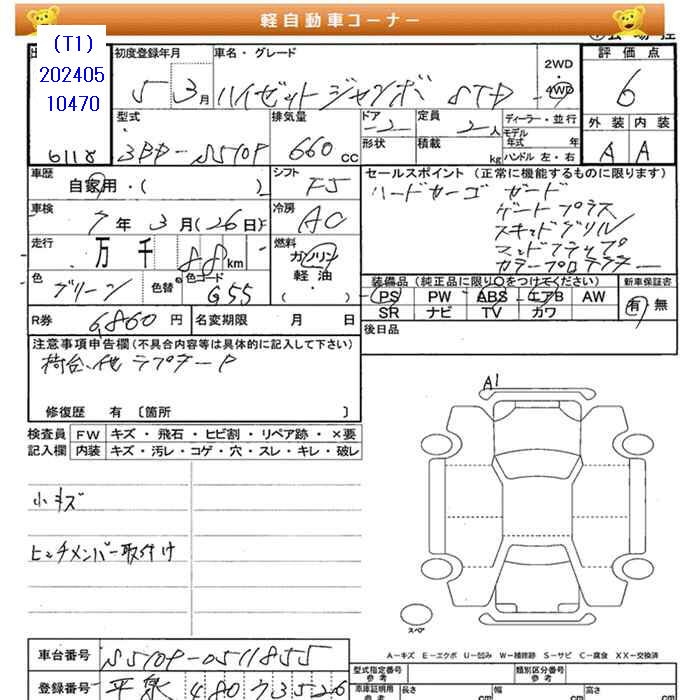 軽自動車コーナー
(T1)
202405
10470
6118
初度登録年月
5 3月
車名・グレード
ハイゼットジャンボ STD
2WD
4WD
評価点
6
型式
3BD-S510P
排気量
660cc
ドア
2
形状
定員
2人
積載 kg
ディーラー・並行
モデル年式 年
ハンドル 左・右
外装 内装
A A
車歴
自家用・( )
シフト
F5
セールスポイント (正常に機能するものに限ります)
ハードカーゴ ガード
ゲートプラス
スキッドグリル
マッドフラップ
カラープロテクター
車検
7年3月(26日)
冷房
AC
走行
万 千 88km
燃料
ガソリン
軽・油
( )
色
グリーン
色替
色コード
G55
装備品 (純正品に限り○をつけてください)
PS PW ABS エアB AW
SR ナビ TV カワ
新車保証書
有 無
R券
6860円
名変期限 月 日
後日品
注意事項申告欄(不具合内容等は具体的に記入して下さい)
荷台、他 ラプターP
修復歴 有 〔箇所 〕
検査員
記入欄
FW キズ・飛石・ヒビ割・リペア跡・×要
内装 キズ・汚レ・コゲ・穴・スレ・キレ・破レ
小キズ
ヒッチメンバー取付け
A1
スペア
A-キズ E-エクボ U-凹み W-補修跡 S-サビ C-腐食 XX-交換済
車台番号
S510P-0511855
登録番号
平泉 480 ツ 3526
型式指定番号
参考
類別区分番号
参考
車庫証明用
参考
長さ cm
幅 cm
高さ cm